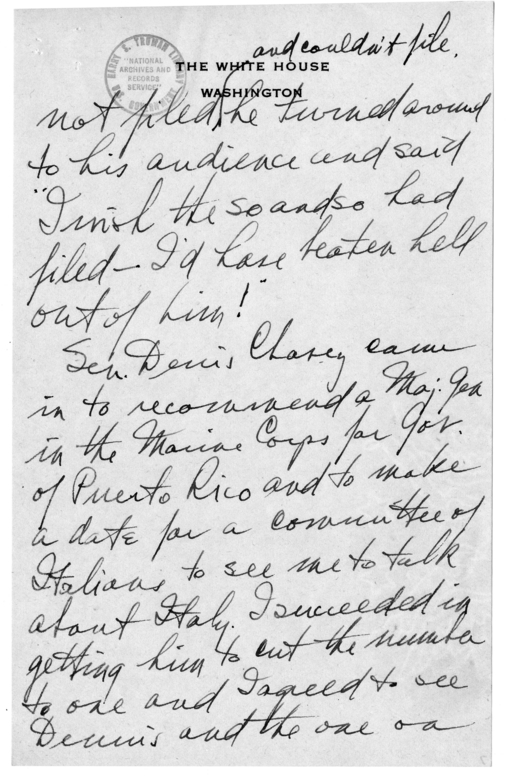 and couldn't file,
HARRY S. TRUMAN LIBRARY
"NATIONAL
ARCHIVES AND
RECORDS
SERVICE"
THE WHITE HOUSE
WASHINGTON
not filed, he turned around
to his audience and said
"I wish the so and so had
filed — I'd have beaten hell
out of him!"
Sen. Denis Chavez came
in to recommend a Maj. Gen
in the Marine Corps for Gov.
of Puerto Rico and to make
a date for a committee of
Italians to see me to talk
about Italy. I succeeded in
getting him to cut the number
to one and I agreed to see
Dennis and the one on